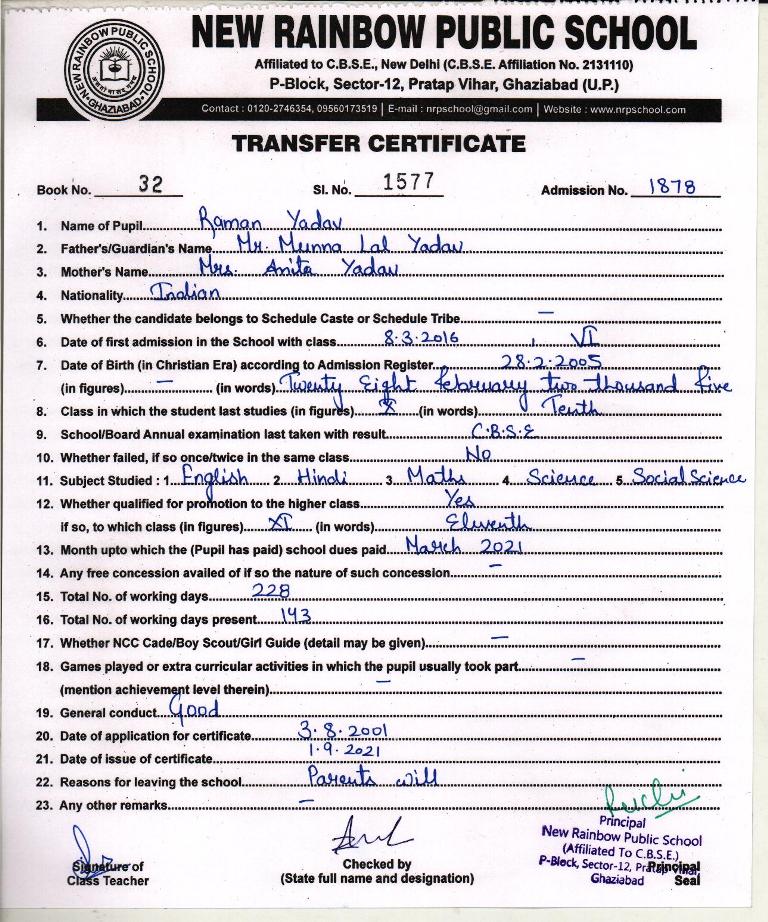 NEW RAINBOW PUBLIC SCHOOL
NEW RAINBOW PUBLIC SCHOOL
GHAZIABAD
Affiliated to C.B.S.E., New Delhi (C.B.S.E. Affiliation No. 2131110)
P-Block, Sector-12, Pratap Vihar, Ghaziabad (U.P.)
Contact : 0120-2746354, 09560173519 | E-mail : nrpschool@gmail.com | Website : www.nrpschool.com
TRANSFER CERTIFICATE
Book No. 32 Sl. No. 1577 Admission No. 1878
1. Name of Pupil Raman Yadav
2. Father's/Guardian's Name Mr. Munna Lal Yadav
3. Mother's Name Mrs. Anita Yadav
4. Nationality Indian
5. Whether the candidate belongs to Schedule Caste or Schedule Tribe —
6. Date of first admission in the School with class 8.3.2016 , VI
7. Date of Birth (in Christian Era) according to Admission Register 28.2.2005
(in figures) — (in words) Twenty Eight february two thousand five
8. Class in which the student last studies (in figures) X (in words) Tenth
9. School/Board Annual examination last taken with result C.B.S.E
10. Whether failed, if so once/twice in the same class No
11. Subject Studied : 1 English 2 Hindi 3 Maths 4 Science 5 Social Science
12. Whether qualified for promotion to the higher class Yes
if so, to which class (in figures) XI (in words) Eleventh
13. Month upto which the (Pupil has paid) school dues paid March 2021
14. Any free concession availed of if so the nature of such concession —
15. Total No. of working days 228
16. Total No. of working days present 143
17. Whether NCC Cade/Boy Scout/Girl Guide (detail may be given) —
18. Games played or extra curricular activities in which the pupil usually took part —
(mention achievement level therein) —
19. General conduct Good
20. Date of application for certificate 3.8.2001
21. Date of issue of certificate 1.9.2021
22. Reasons for leaving the school Parents will
23. Any other remarks —
Ruchi
Principal
New Rainbow Public School
(Affiliated To C.B.S.E.)
P-Block, Sector-12, Pratap Vihar
Ghaziabad
Signature of
Class Teacher
Checked by
(State full name and designation)
Principal
Seal